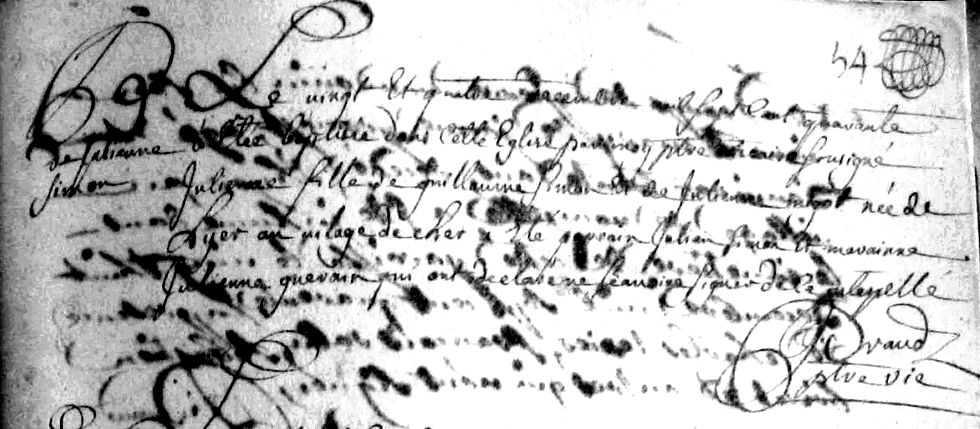 54
Bap. Le vingt Et quatre decembre mil sept cent quarante
de Julienne a Eté baptisée dans cette Eglise par moy ptre vicaire sousigné
simon Julienne fille de guillaume simon Et de Julienne née de
hyer au vilage de parain Julien simon Et maraine
Julienne quevair qui ont declaré ne scavoire signer de ce interpellé
Graud
ptre vic